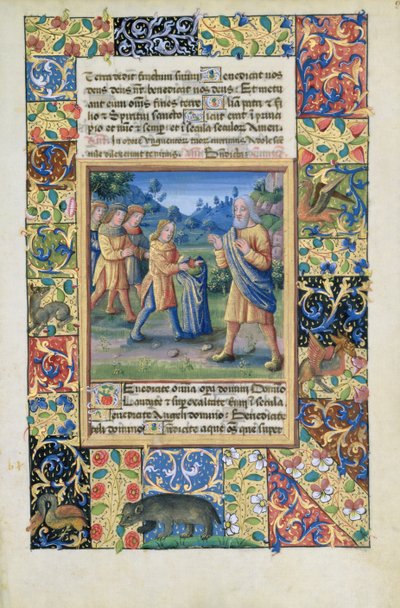 Terra dedit fructum suum Benedicat nos
deus deus nr̄ benedicat nos deus: Et metu
ant eum om̄s fines terre Glia patri et fi
lio et Spiritui sancto Sicut erat i prin
cipio et nūc et semp et i secula seculor Amen
In odore
Benedicite omīa opa domini Domīo
Laudate et supexaltate eum i secula
Benedicite Angeli domini domino: Benedicite
celi domino Bn̄dicite aque oēs que super